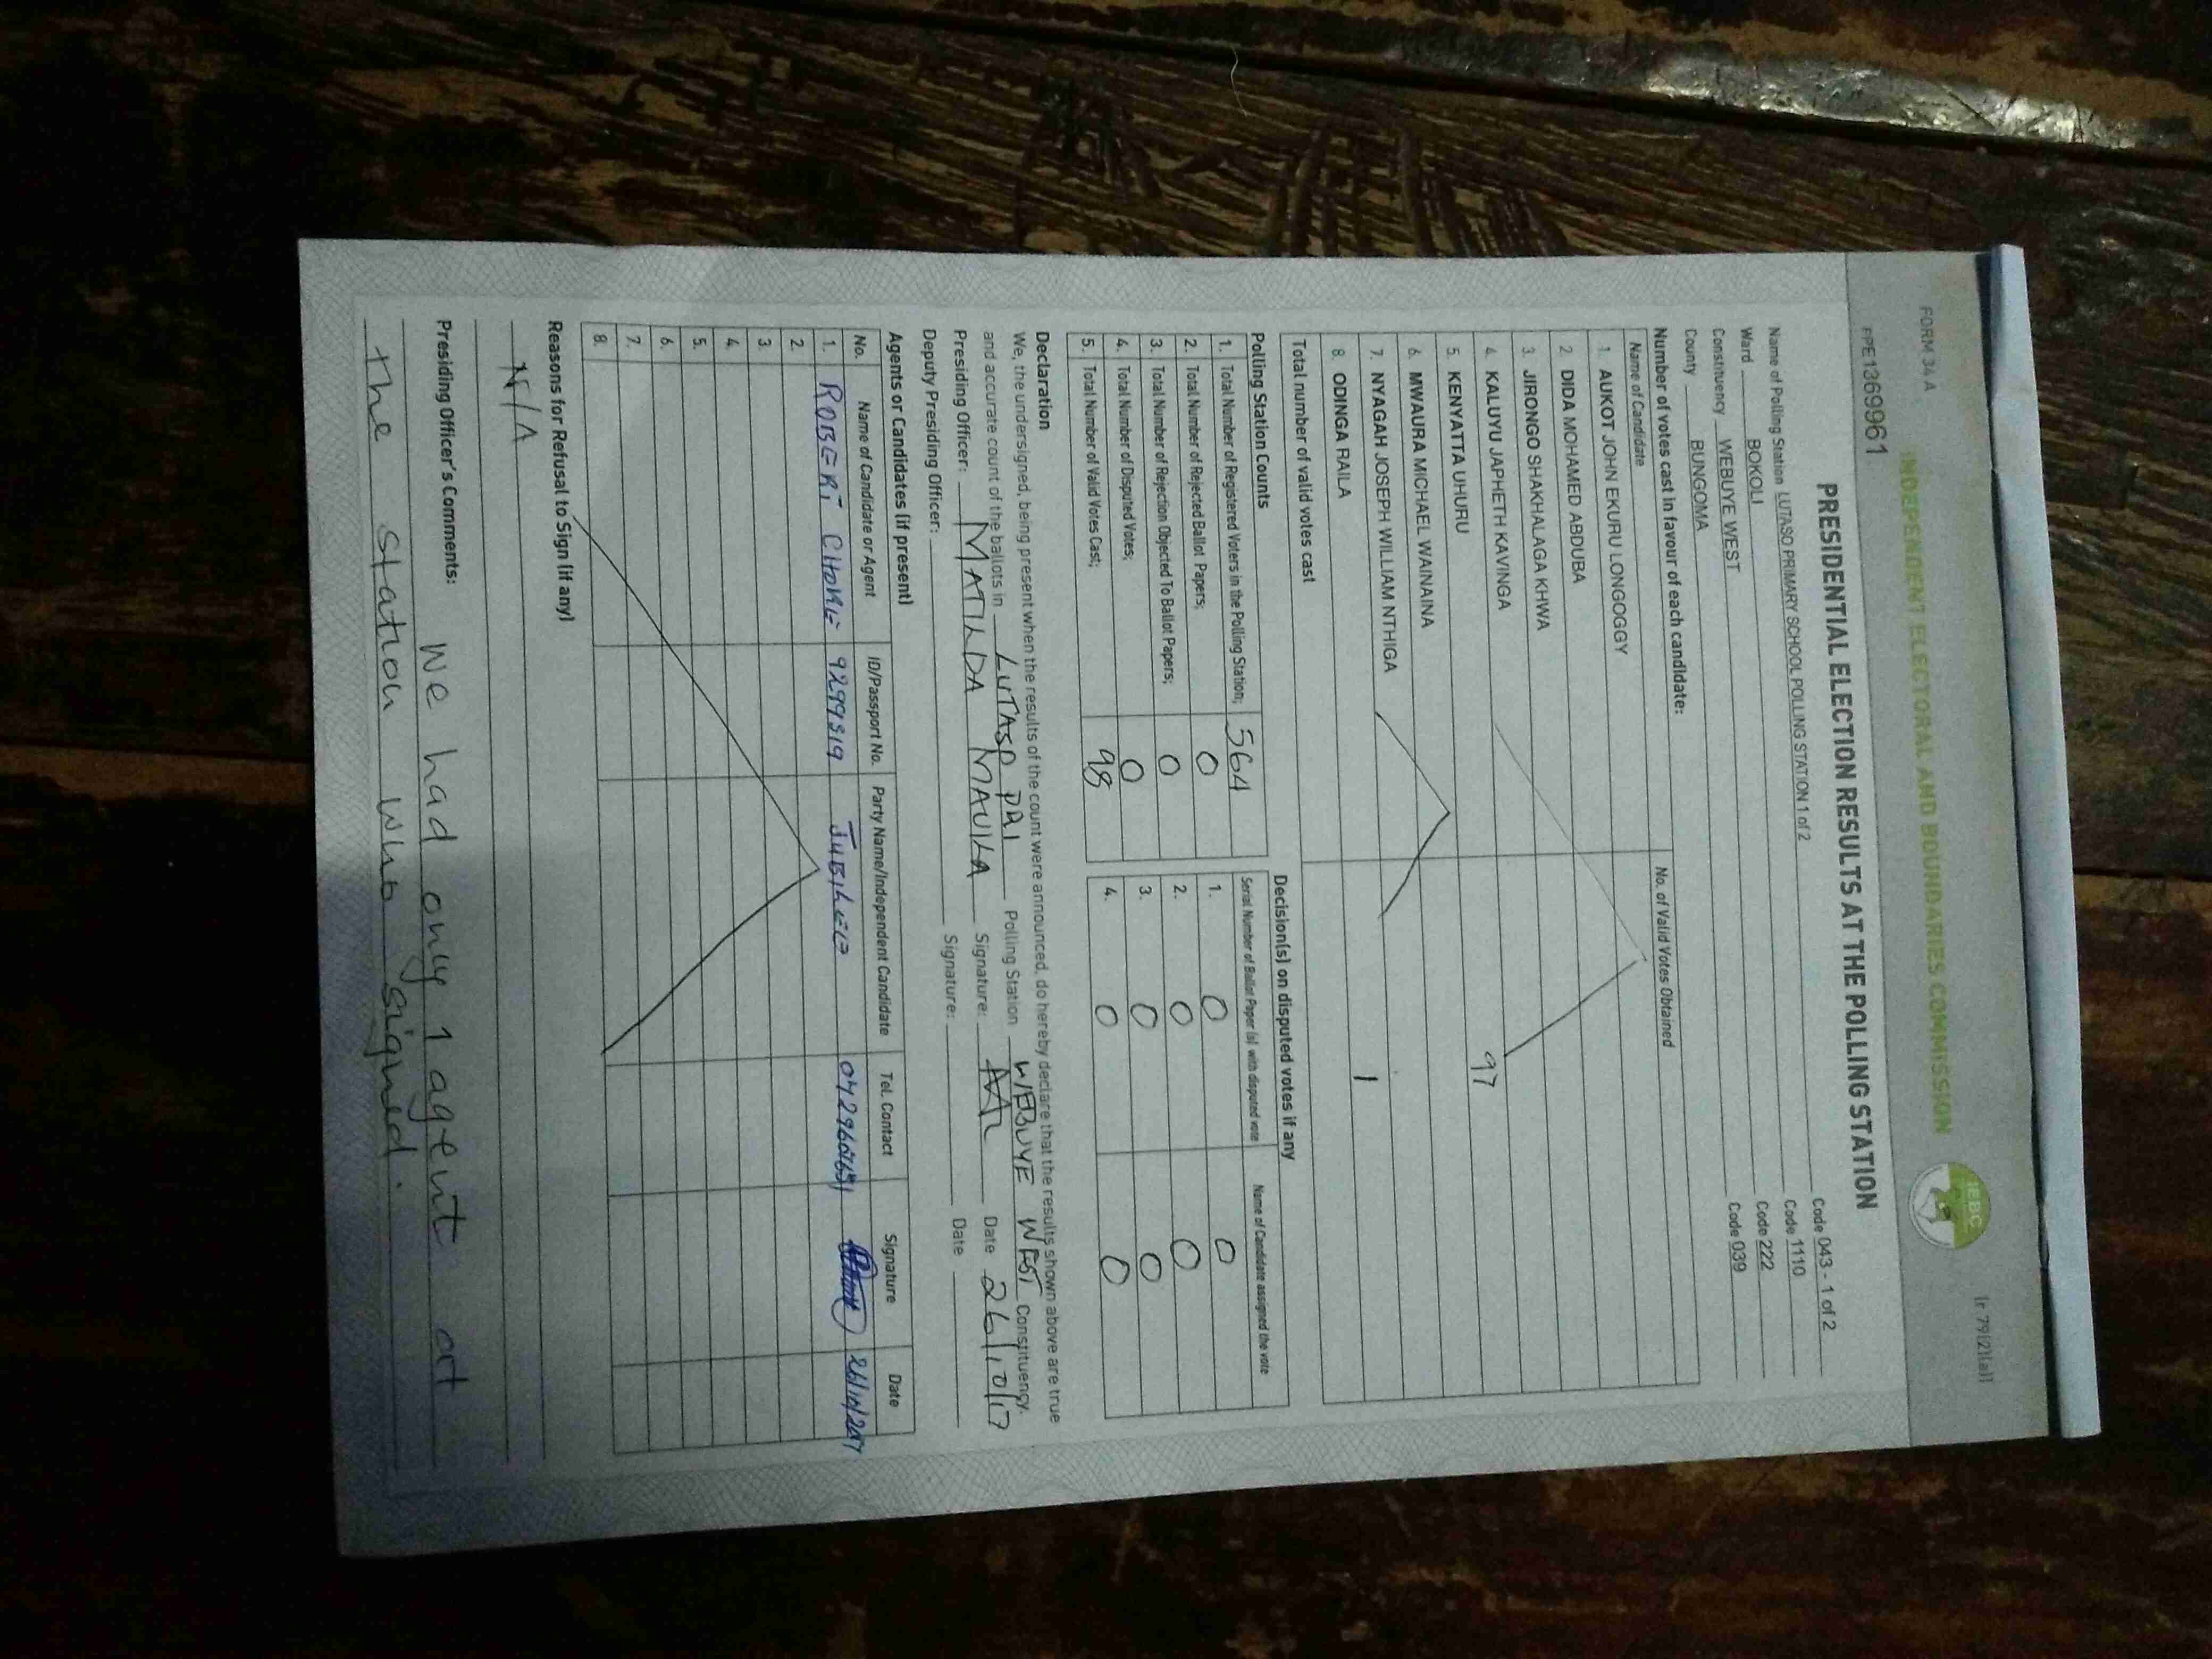 FORM 34 A
(r 79(2)(a))
INDEPENDENT ELECTORAL AND BOUNDARIES COMMISSION
IEBC
PPE1369961
PRESIDENTIAL ELECTION RESULTS AT THE POLLING STATION
Name of Polling Station LUTASO PRIMARY SCHOOL POLLING STATION 1 of 2 Code 043 - 1 of 2
Ward BOKOLI Code 1110
Constituency WEBUYE WEST Code 222
County BUNGOMA Code 039
Number of votes cast in favour of each candidate:
Name of Candidate No. of Valid Votes Obtained
1. AUKOT JOHN EKURU LONGOGGY
2. DIDA MOHAMED ABDUBA
3. JIRONGO SHAKHALAGA KHWA
4. KALUYU JAPHETH KAVINGA
5. KENYATTA UHURU 97
6. MWAURA MICHAEL WAINAINA
7. NYAGAH JOSEPH WILLIAM NTHIGA
8. ODINGA RAILA 1
Total number of valid votes cast
Polling Station Counts
1. Total Number of Registered Voters in the Polling Station; 564
2. Total Number of Rejected Ballot Papers; 0
3. Total Number of Rejection Objected To Ballot Papers; 0
4. Total Number of Disputed Votes; 0
5. Total Number of Valid Votes Cast; 98
Decision(s) on disputed votes if any
Serial Number of Ballot Paper (s) with disputed vote Name of Candidate assigned the vote
1. 0 0
2. 0 0
3. 0 0
4. 0 0
Declaration
We, the undersigned, being present when the results of the count were announced, do hereby declare that the results shown above are true
and accurate count of the ballots in LUTASO PRI Polling Station WEBUYE WEST Constituency.
Presiding Officer: MATILDA MAUKA Signature: Date 26/10/17
Deputy Presiding Officer: Signature: Date
Agents or Candidates (if present)
No. Name of Candidate or Agent ID/Passport No. Party Name/Independent Candidate Tel. Contact Signature Date
1. ROBERT JUBILEE 26/10/2017
2.
3.
4.
5.
6.
7.
8.
Reasons for Refusal to Sign (if any)
N/A
Presiding Officer's Comments: We had only 1 agent at
the station who signed.